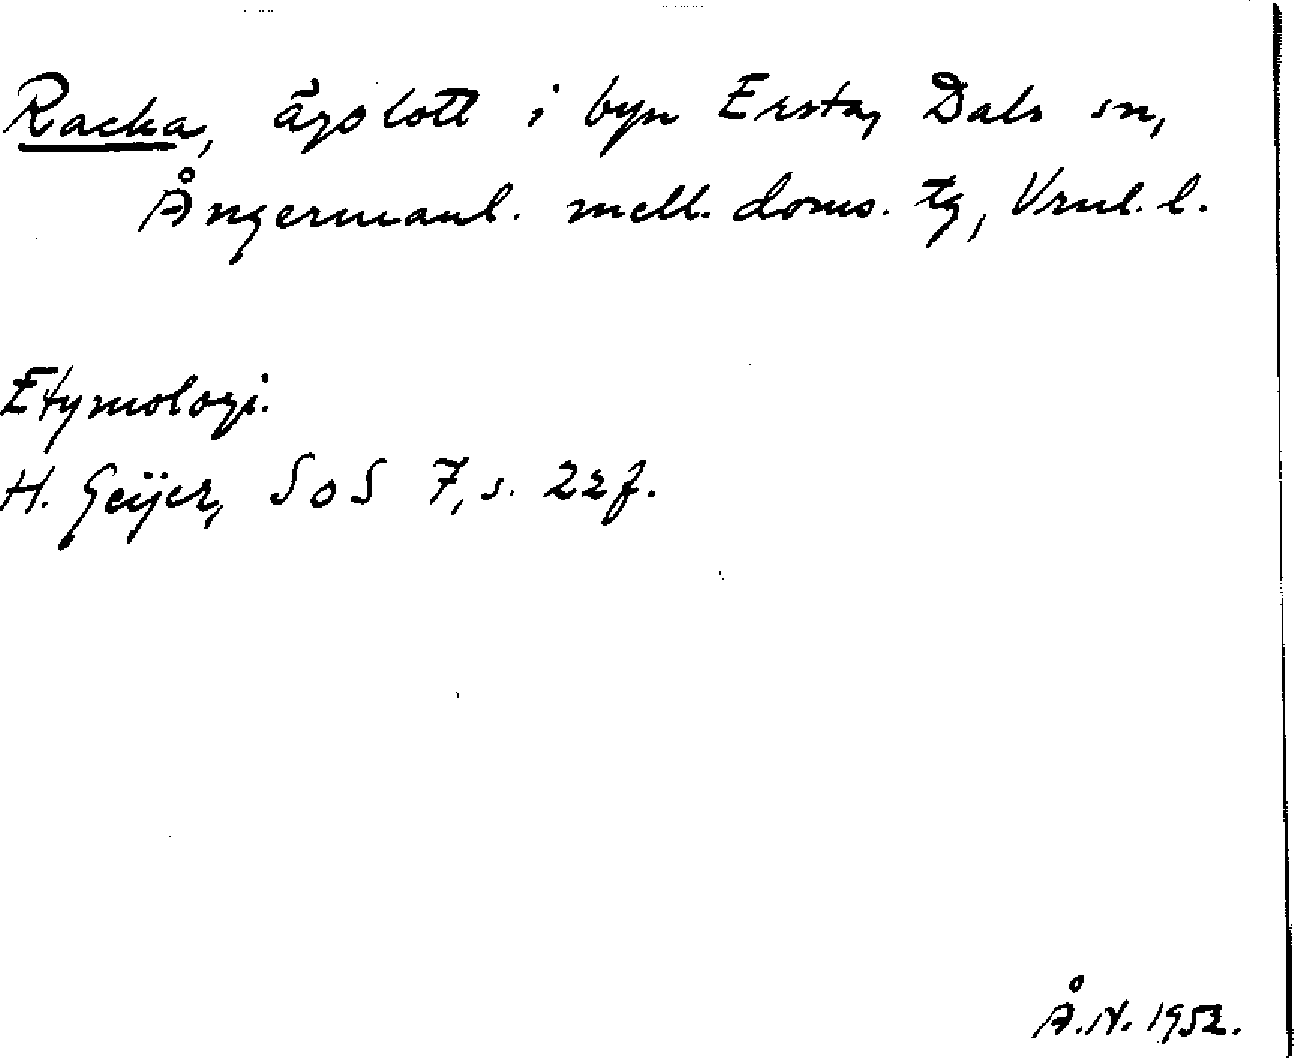 Racka, ägolott i byn Ersta, Dals sn,
Ångermanl. mell. doms. tg, Vrnl. l.
Etymologi.
H. Geijer, SoS 7, s. 22 f.
Å. N. 1952.